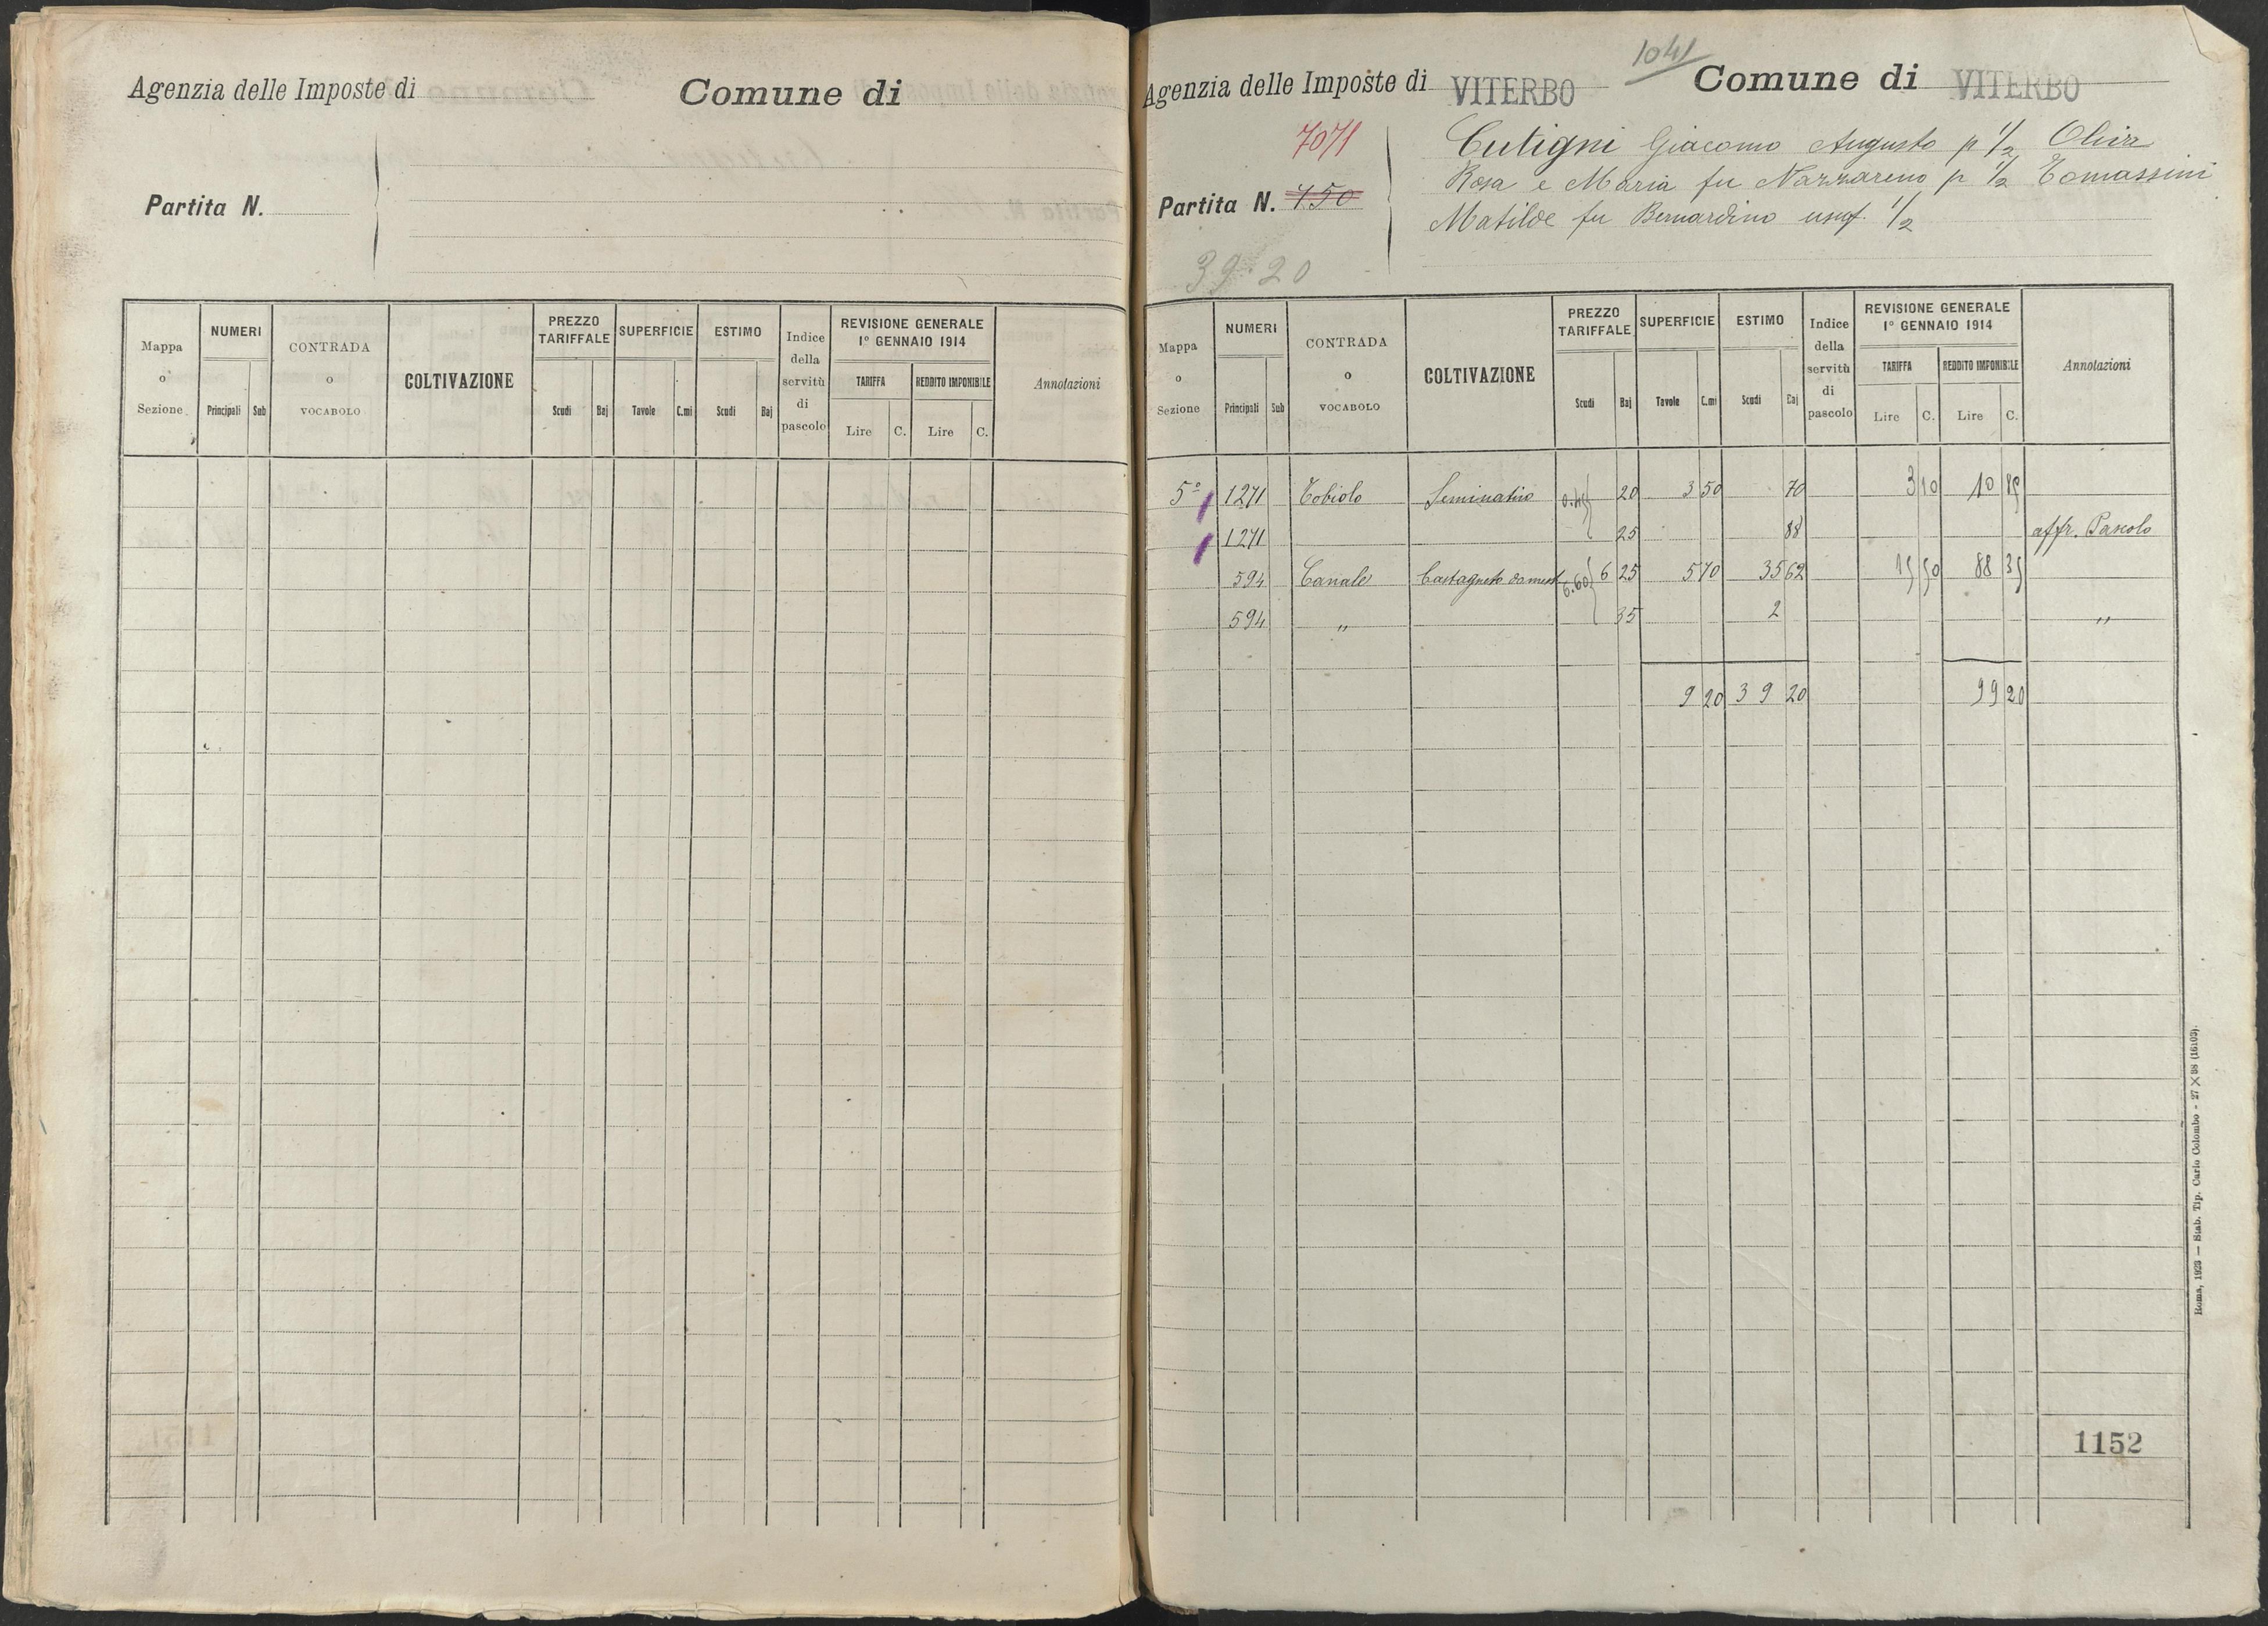 Agenzia delle Imposte di Comune di
Partita N.
Mappa o Sezione NUMERI Principali Sub CONTRADA o VOCABOLO COLTIVAZIONE PREZZO TARIFFALE Scudi Baj SUPERFICIE Tavole C.mi ESTIMO Scudi Baj Indice della servitù di pascolo REVISIONE GENERALE 1º GENNAIO 1914 TARIFFA Lire C. REDDITO IMPONIBILE Lire C. Annotazioni
1041
Agenzia delle Imposte di VITERBO Comune di VITERBO
7071
Partita N. 450
39.20
Cutigni Giacomo Augusto p 1/2 Oliva
Rosa e Maria fu Nazzareno p 1/2 Tomassini
Matilde fu Bernardino usuf. 1/2
Mappa o Sezione NUMERI Principali Sub CONTRADA o VOCABOLO COLTIVAZIONE PREZZO TARIFFALE Scudi Baj SUPERFICIE Tavole C.mi ESTIMO Scudi Baj Indice della servitù di pascolo REVISIONE GENERALE 1º GENNAIO 1914 TARIFFA Lire C. REDDITO IMPONIBILE Lire C. Annotazioni
5ª 1271 Tobiolo Seminativo 0.45 20 3 50 70 3 10 10 85
1271 25 88 affr. Pascolo
594 Canale Castagneto da mest 6.60 6 25 5 70 35 62 15 50 88 35
594 " 35 2 "
9 20 39 20 99 20
1152
Roma, 1923 — Stab. Tip. Carlo Colombo - 27 X 88 (16103).